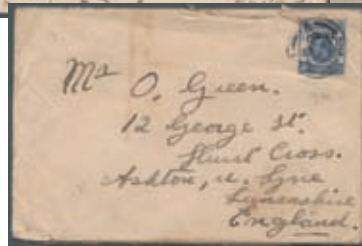 Mr O. Green.
12 George St.
Hurst Cross.
Ashton, u. Lyne
Lancashire
England.